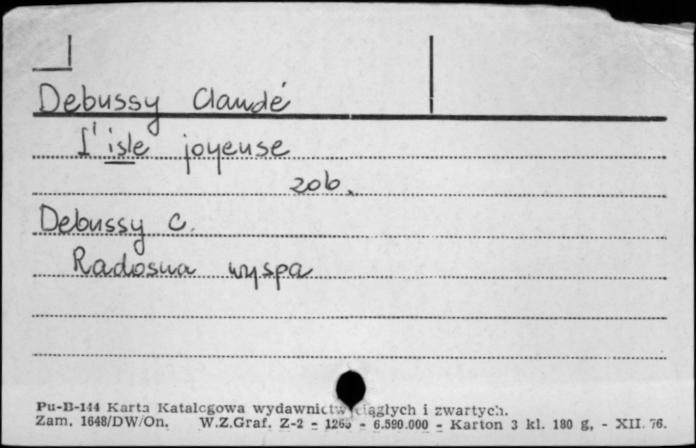 Debussy Claudé
I'isle joyeuse
zob.
Debussy C.
Radosna wyspa
Pu-B-144 Karta Katalogowa wydawnictw ciągłych i zwartych.
Zam. 1648/DW/On. W.Z.Graf. Z-2 - 1265 - 6.590.000 - Karton 3 kl. 180 g, - XII. 76.